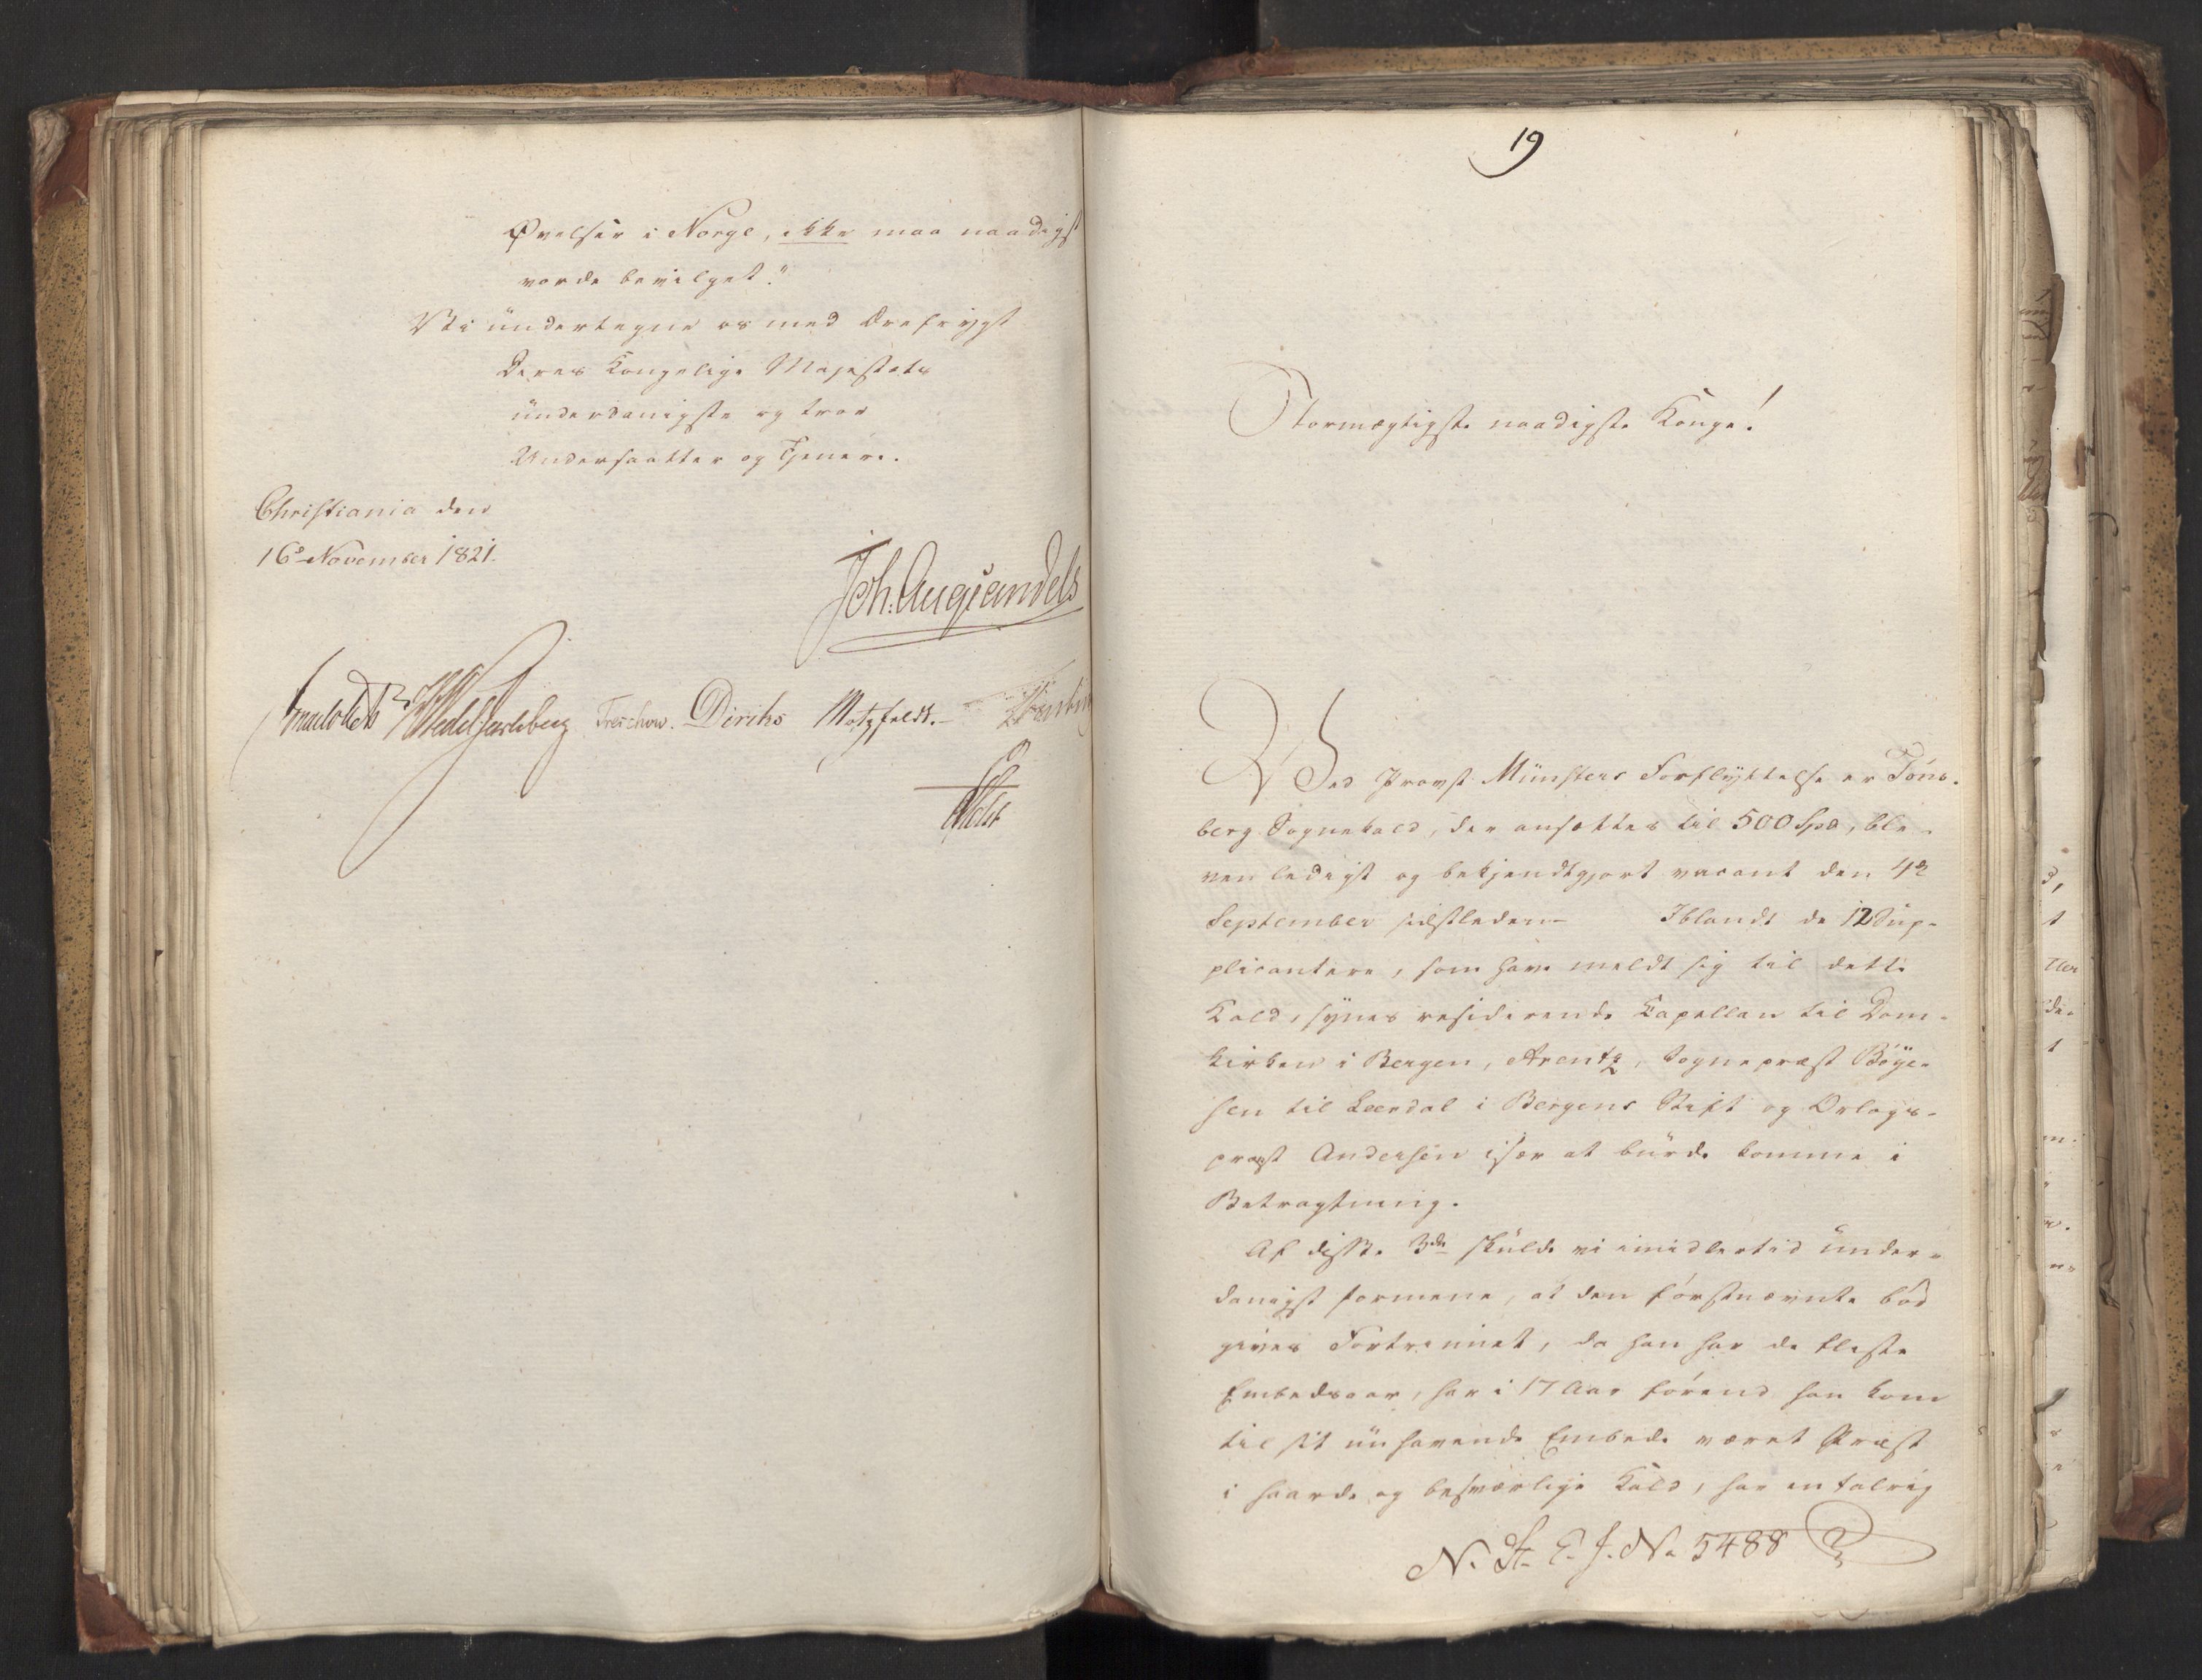 Øvelser i Norge, ikke maa naadigst
vorde bevilget."
Vi ündertegne os med Ærefrygt
Deres Kongelige Majestæts
ünderdanigste og troe
Undersaatter og Tjenere.
Christiania den
16de November 1821.
Joh. Aug. Sandels
Wedel Jarlsberg Treschow. Diriks Motzfeldt.
19
Stormægtigste naadigste Konge!
Ved Provst Münsters Forflyttelse er Töns-
berg Sognekald, der ansættes til 500 Spd, ble-
ven ledigt og bekjendtgjort vacant den 4de
September sidstleden. Iblandt de 12 Sup-
plicantere, som have meldt sig til dette
Kald, synes residerende Kapellan til Dom-
kirken i Bergen, Arentz, Sognepræst Böye-
sen til Leerdal i Bergens Stift og Orlogs-
præst Andersen især at bürde komme i
Betragtning.
Af disse 3de skülde vi imidlertid ünder-
danigst formene, at den förstnævnte bör
gives Fortrinnet, da han har de fleste
Embedsaar, har i 17 Aar förend han kom
til sit ünhavende Embede været Præst
i haarde og besværlige Kald, har en talrig
N. St. E. J. No 5488